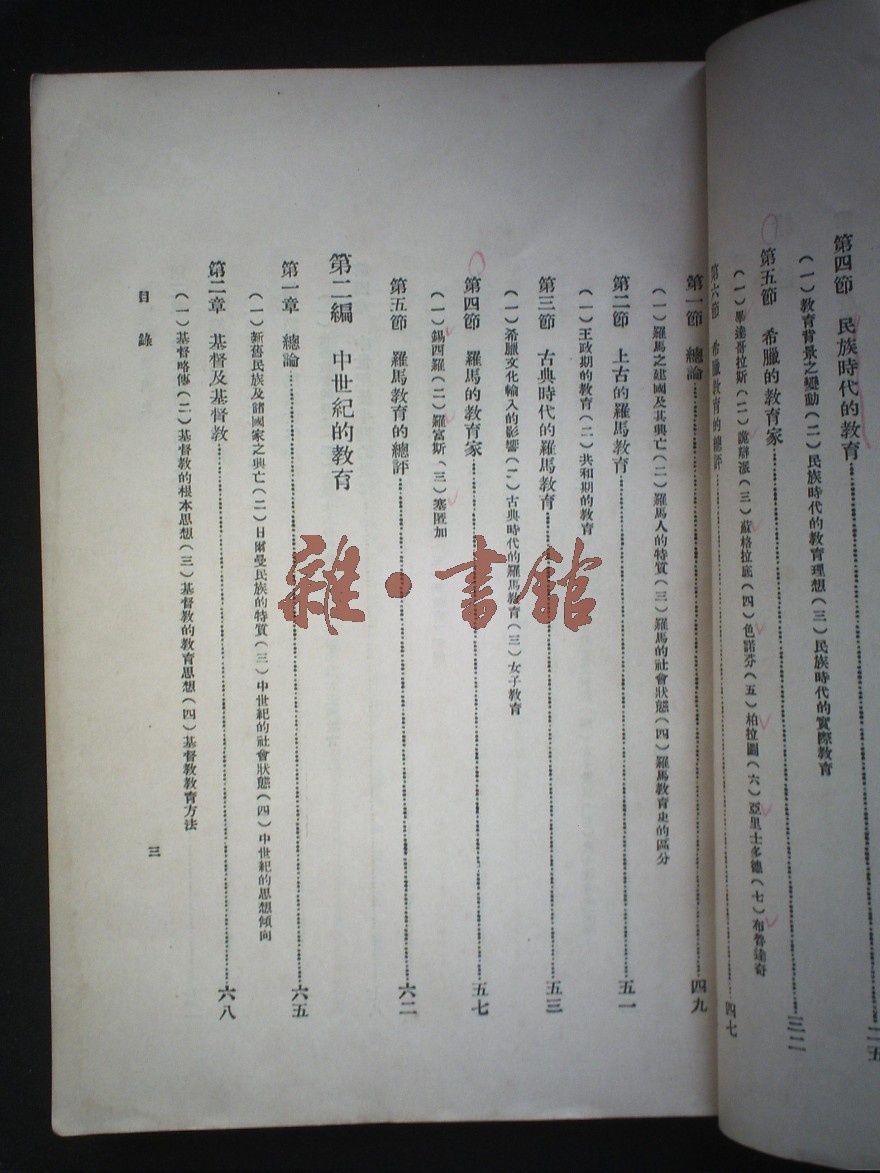 第四節　民族時代的教育……二五
（一）教育背景之變動（二）民族時代的教育理想（三）民族時代的實際教育
第五節　希臘的教育家……三二
（一）畢達哥拉斯（二）詭辯派（三）蘇格拉底（四）色諾芬（五）柏拉圖（六）亞里士多德（七）布魯達奇
第六節　希臘教育的總評……四七
第一節　總論……四九
（一）羅馬之建國及其興亡（二）羅馬人的特質（三）羅馬的社會狀態（四）羅馬教育史的區分
第二節　上古的羅馬教育……五一
（一）王政期的教育（二）共和期的教育
第三節　古典時代的羅馬教育……五三
（一）希臘文化輸入的影響（二）古典時代的羅馬教育（三）女子教育
第四節　羅馬的教育家……五七
（一）錫西羅（二）羅富斯（三）塞匿加
第五節　羅馬教育的總評……六二
第二編　中世紀的教育
第一章　總論……六五
（一）新舊民族及諸國家之興亡（二）日爾曼民族的特質（三）中世紀的社會狀態（四）中世紀的思想傾向
第二章　基督及基督教……六八
（一）基督略傳（二）基督教的根本思想（三）基督教的教育思想（四）基督教教育方法
目錄
三
雜·書館